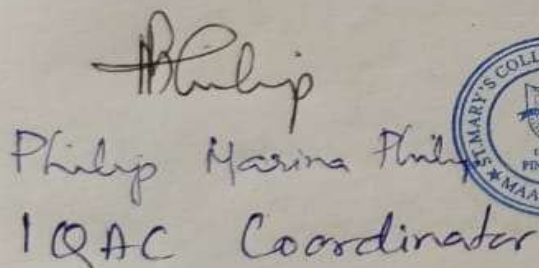 Philip
Philip Marina Philip
IQAC Coordinator
ST.MARY'S COLL
PIN
MAA